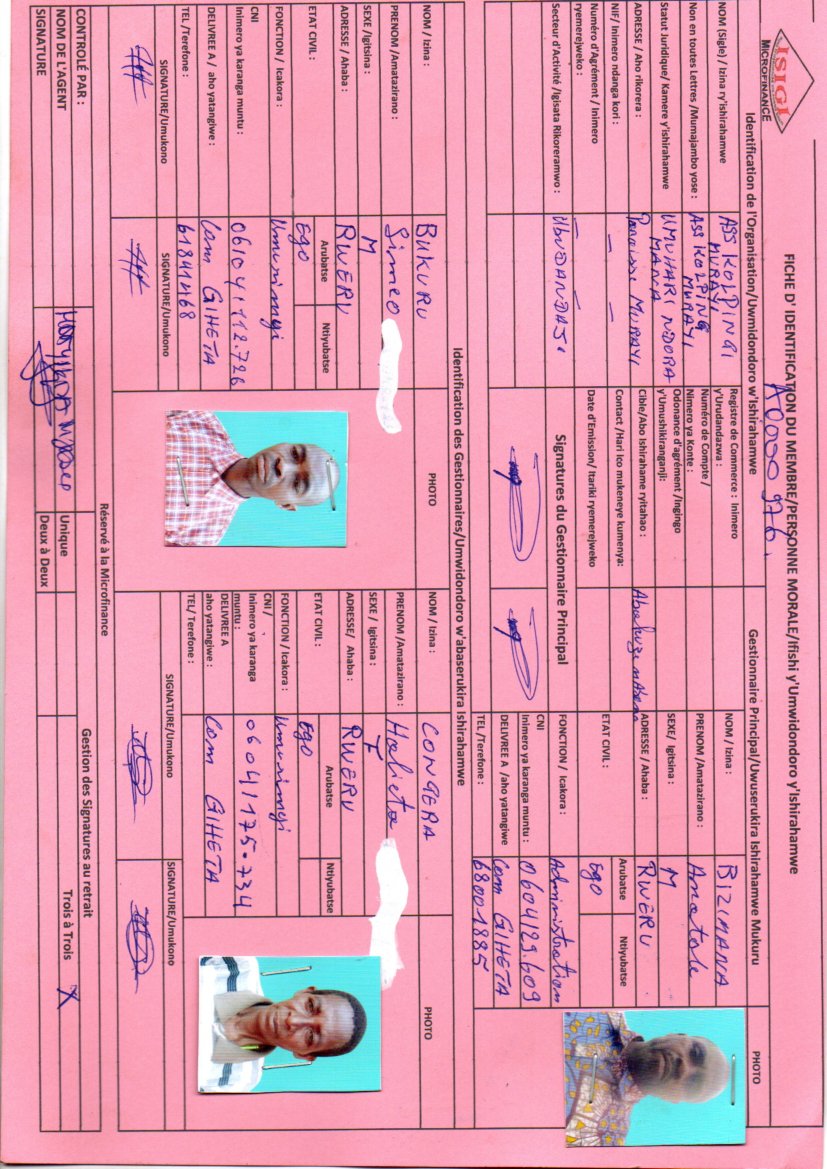 ISIGI
MICROFINANCE
FICHE D' IDENTIFICATION DU MEMBRE/PERSONNE MORALE/Ifishi y'Umwidondoro y'Ishirahamwe
A0000976.
Identification de l'Organisation/Uwmidondoro w'Ishirahamwe
NOM (Sigle) / Izina ry'ishirahamwe
ASS KOLPINGI MURAYI
Non en toutes Lettres /Mumajambo yose :
ASS KOLPING MURAYI
Statut Juridique/ Kamere y'ishirahamwe
UMUHARI NDORA MANA
ADRESSE / Aho rikorera :
Paroisse MURAYI
NIF/ Inimero ndanga kori :
Numéro d'Agrément / Inimero ryemerejweko :
Secteur d'Activité /Igisata Rikoreramwo :
UbuDANDAJI
Registre de Commerce : Inimero y'Urudandazwa :
Numéro de Compte / Nimero ya Konte :
Odonance d'agrément /Ingingo y'Umushikiranganji:
Cible/Abo ishirahame ryitaho :
Contact /Hari ico mukeneye kumenya:
Date d'Emission/ Itariki ryemerejweko
Signatures du Gestionnaire Principal
Gestionnaire Principal/Uwuserukira Ishirahamwe Mukuru
PHOTO
NOM / Izina :
BIZIMANA
PRENOM /Amatazirano :
Anatole
SEXE/ Igitsina :
M
ADRESSE / Ahaba :
RWERU
ETAT CIVIL :
Arubatse
Ntiyubatse
Ego
FONCTION / Icakora :
Administration
CNI
Inimero ya karanga muntu :
0604129.609
DELIVREE A /aho yatangiwe
Com GIHETA
TEL /Terefone :
68001885
Identification des Gestionnaires/Umwidondoro w'abaserukira Ishirahamwe
NOM / Izina :
BUKURU
PHOTO
PRENOM /Amatazirano :
Simeo
SEXE /Igitsina :
M
ADRESSE / Ahaba :
RWERU
ETAT CIVIL :
Arubatse
Ntiyubatse
Ego
FONCTION / Icakora :
Umurimyi
CNI
Inimero ya karanga muntu :
DELIVREE A / aho yatangiwe :
Com GIHETA
TEL /Terefone :
61841468
SIGNATURE/Umukono
SIGNATURE/Umukono
NOM / Izina :
CONGERA
PHOTO
PRENOM /Amatazirano :
SEXE / Igitsina :
F
ADRESSE/ Ahaba :
RWERU
ETAT CIVIL :
Arubatse
Ntiyubatse
Ego
FONCTION / Icakora :
Umurimyi
CNI /
Inimero ya karanga muntu :
06041175.734
DELIVREE A
aho yatangiwe :
Com GIHETA
TEL/ Terefone :
SIGNATURE/Umukono
SIGNATURE/Umukono
Réservé à la Microfinance
CONTROLÉ PAR :
NOM DE L'AGENT
SIGNATURE
Gestion des Signatures au retrait
Unique
Deux à Deux
Trois à Trois
X